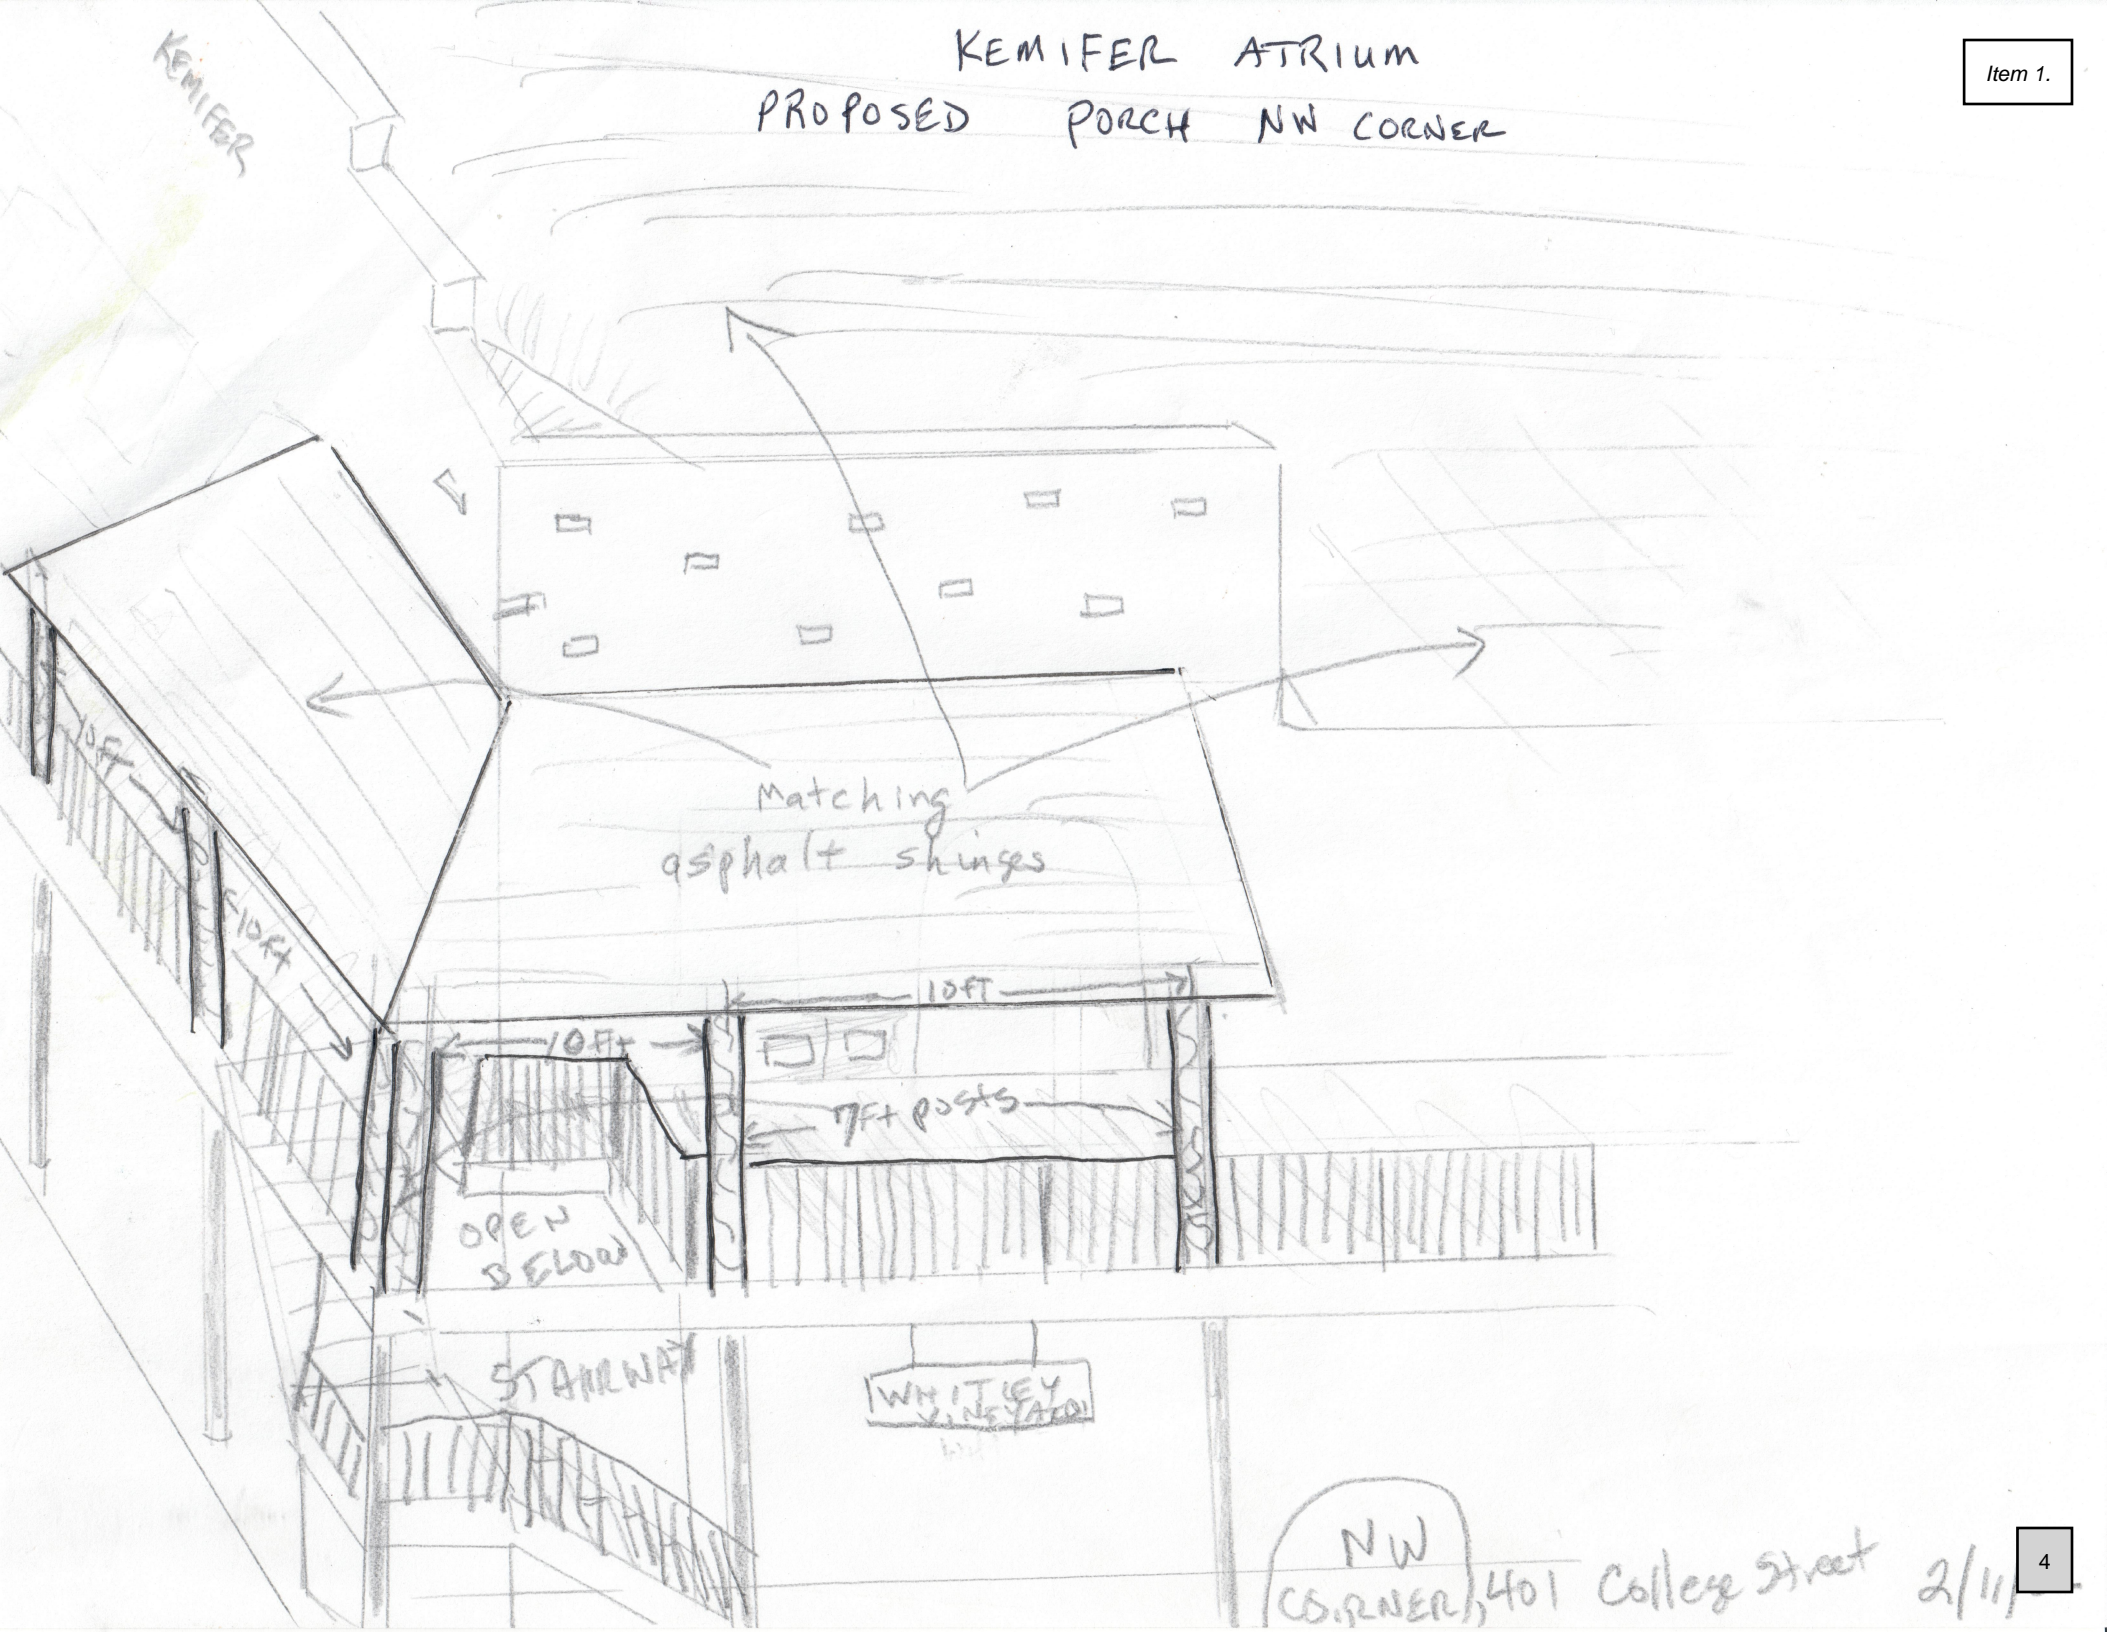 KEMIFER ATRIUM
PROPOSED PORCH NW CORNER
Item 1.
KEMIFER
Matching
asphalt shinges
10ft
10ft
10FT
10Ft
7Ft posts
OPEN
BELOW
STAIRWAY
WHITLEY
VINEYARD
NW
CORNER, 401 College Street 2/11/
4